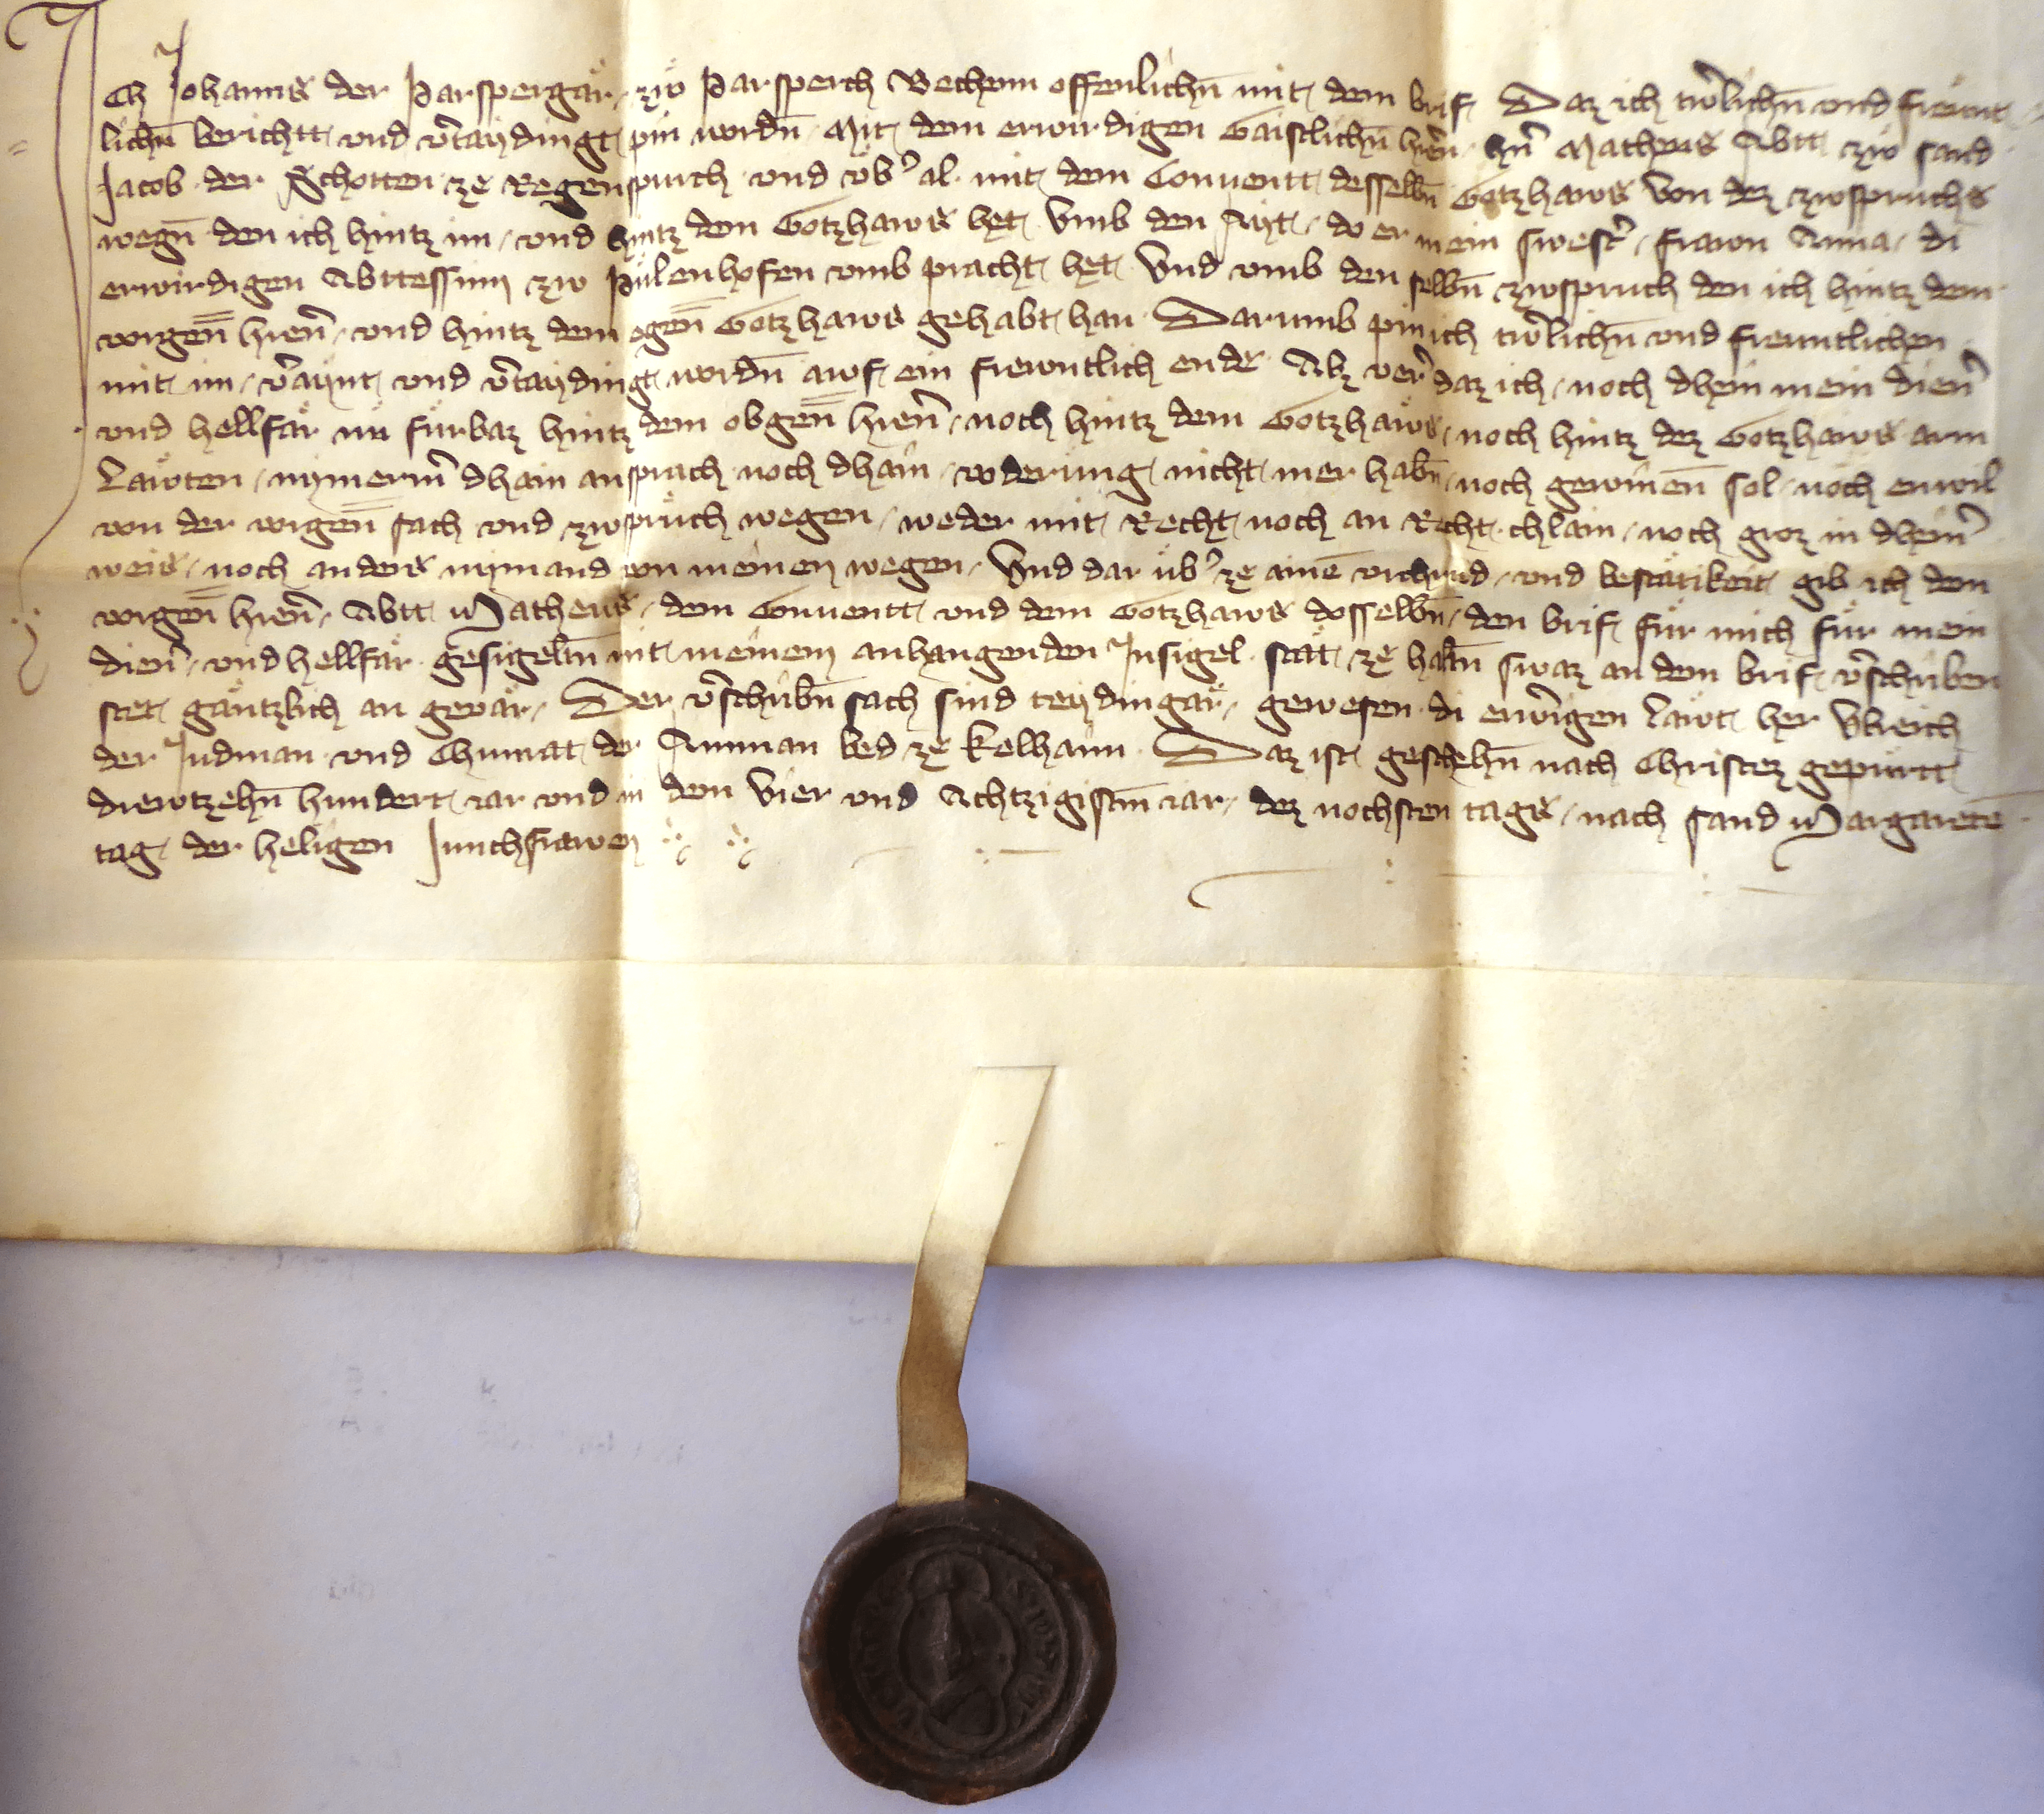 Ich Johanns der Parspergär zw Parsperch Vechenn offenlichn̄ mit dem brif Daz ich trẘlichn̄ vnd freunt
lichn̄ berichtt vnd v̾taydingt pin wordn̄ Mit dem erwirdigen Gaistlichn̄ hren̄ hn̄ Matheus Abtt zw sand
Jacob der Schotten ze Regenspurch vnd vb̾ al mit dem Conuentt desselbn̄ Gotzhaws Von dez zwspruchs
wegn̄ den ich hintz im vnd hintz dem Gotzhaws het Vmb den Ayt do er mein swest̾ frawn Anna di
erwirdigen Abttessinn zw Pülenhofen vmb pracht het Vnd vmb den selbn̄ zwspruch den ich hintz dem
vorgen̄ hren̄ vnd hintz dem egen̄ Gotzhaws gehabt han Darumb pin ich trẘlichn̄ vnd freuntlichen
mit im v̾aynt vnd v̾taydingt wordn̄ awf ein frewntlich ende Alz ver̾ daz ich noch dhein mein dien̾
vnd hellfär nü fürbaz hintz dem obgen̄ hren̄ noch hintz dem Gotzhaws noch hintz dez Gotzhaws arm
Läwten nymerm̾ dhain ansprach noch dhain voderüng nicht mer habn̄ noch gewinen̄ sol noch enwil
von der vorgen̄ sach vnd zwsprüch wegen weder mit Recht noch an Recht chlain noch groz in dhein̾
weis noch anders nymand von meinen wegen Vnd dar üb̾ ze aine vrchund vnd bestätikeit gib ich dem
vorgen̄ hren̄ Abtt Matheus dem Conuentt vnd dem Gotzhaws dosselbn̄ den brif für mich für mein
dien̾ vnd hellfär gesigeltn̄ mit meinem anhangenden Insigel stät ze habn̄ swaz an dem brif v̾schriben
stet gäntzlich an gevär Der v̾schribn̄ sach sind teydingär gewesen di erw̾igen Läwt her Vlreich
der Judman vnd Chunrat der Amman bed ze Kelhaim Daz ist geschehn̄ nach Christez gepürtt
diewtzehn̄ hundert iar vnd in dem Vier vnd Achtzigistn̄ iar dez nochsten tags nach sand Margarete
tag der heligen Junchfrawen